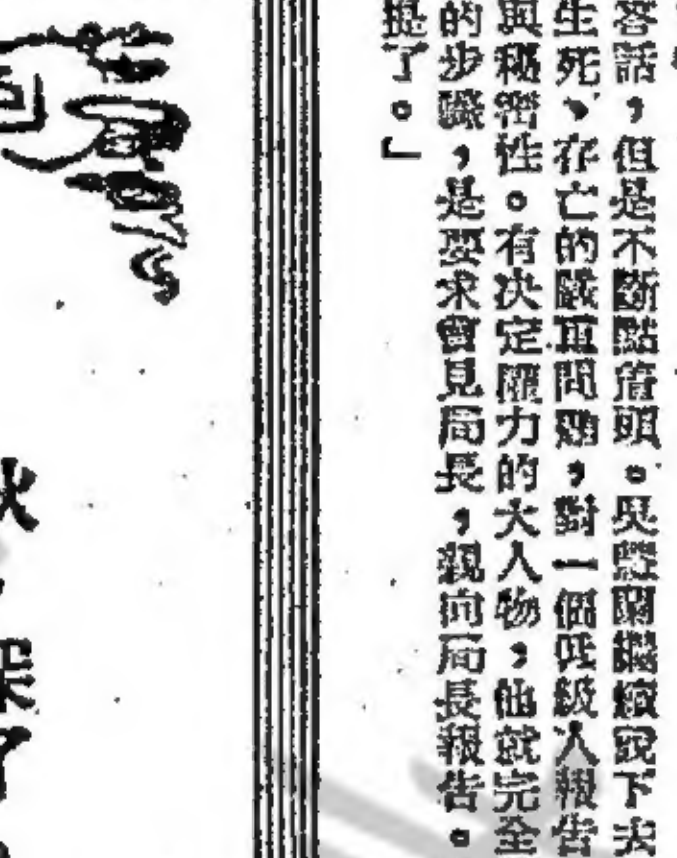 答話，但是不斷點着頭。吳豔蘭繼續說下去
生死、存亡的嚴重問題，對一個低級人報告
與秘密性。有決定權力的大人物，他就完全
的步驟，是要求會見局長，親向局長報告。
提了。」
秋，深了，